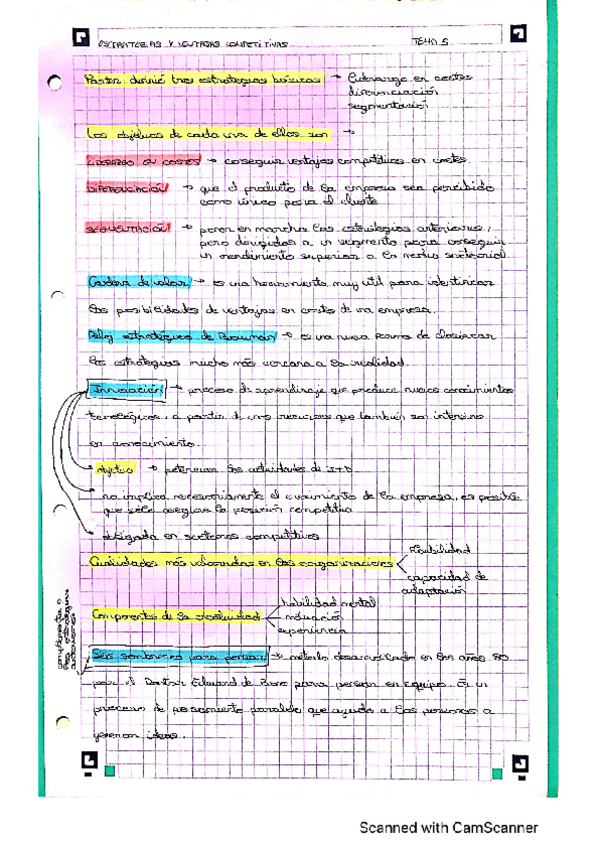 ESTRATEGIAS Y VENTAJAS COMPETITIVAS TEMA 5
Porter definió tres estrategias básicas → Liderazgo en costes
diferenciación
segmentación
Los objetivos de cada una de ellas son →
LIDERAZGO EN COSTES → conseguir ventajas competitivas en costes
DIFERENCIACIÓN → que el producto de la empresa sea percibido
como único para el cliente
SEGMENTACIÓN → poner en marcha las estrategias anteriores,
pero dirigidas a un segmento para conseguir
un rendimiento superior a la media sectorial
Cadena de valor → es una herramienta muy util para identificar
las posibilidades de ventajas en costes de una empresa.
Reloj estratégico de Bowman → es una nueva forma de clasificar
las estrategias mucho más cercana a la realidad.
Innovación → proceso de aprendizaje que produce nuevos conocimientos
tecnológicos, a partir de unos recursos que también son intensivos
en conocimiento.
objetivo → potenciar las actividades de I+D
no implica necesariamente el crecimiento de la empresa, es posible
que sólo asegure la posición competitiva
obligada en sectores competitivos
Cualidades más valoradas en las organizaciones
flexibilidad
capacidad de
adaptación
Componentes de la creatividad
habilidad mental
motivación
experiencia
complementa a
las estrategias
anteriores
Seis sombreros para pensar → método desarrollado en los años 80
por el Doctor Edward de Bono para pensar en equipo. Es un
proceso de pensamiento paralelo que ayuda a las personas a
generar ideas.
Scanned with CamScanner